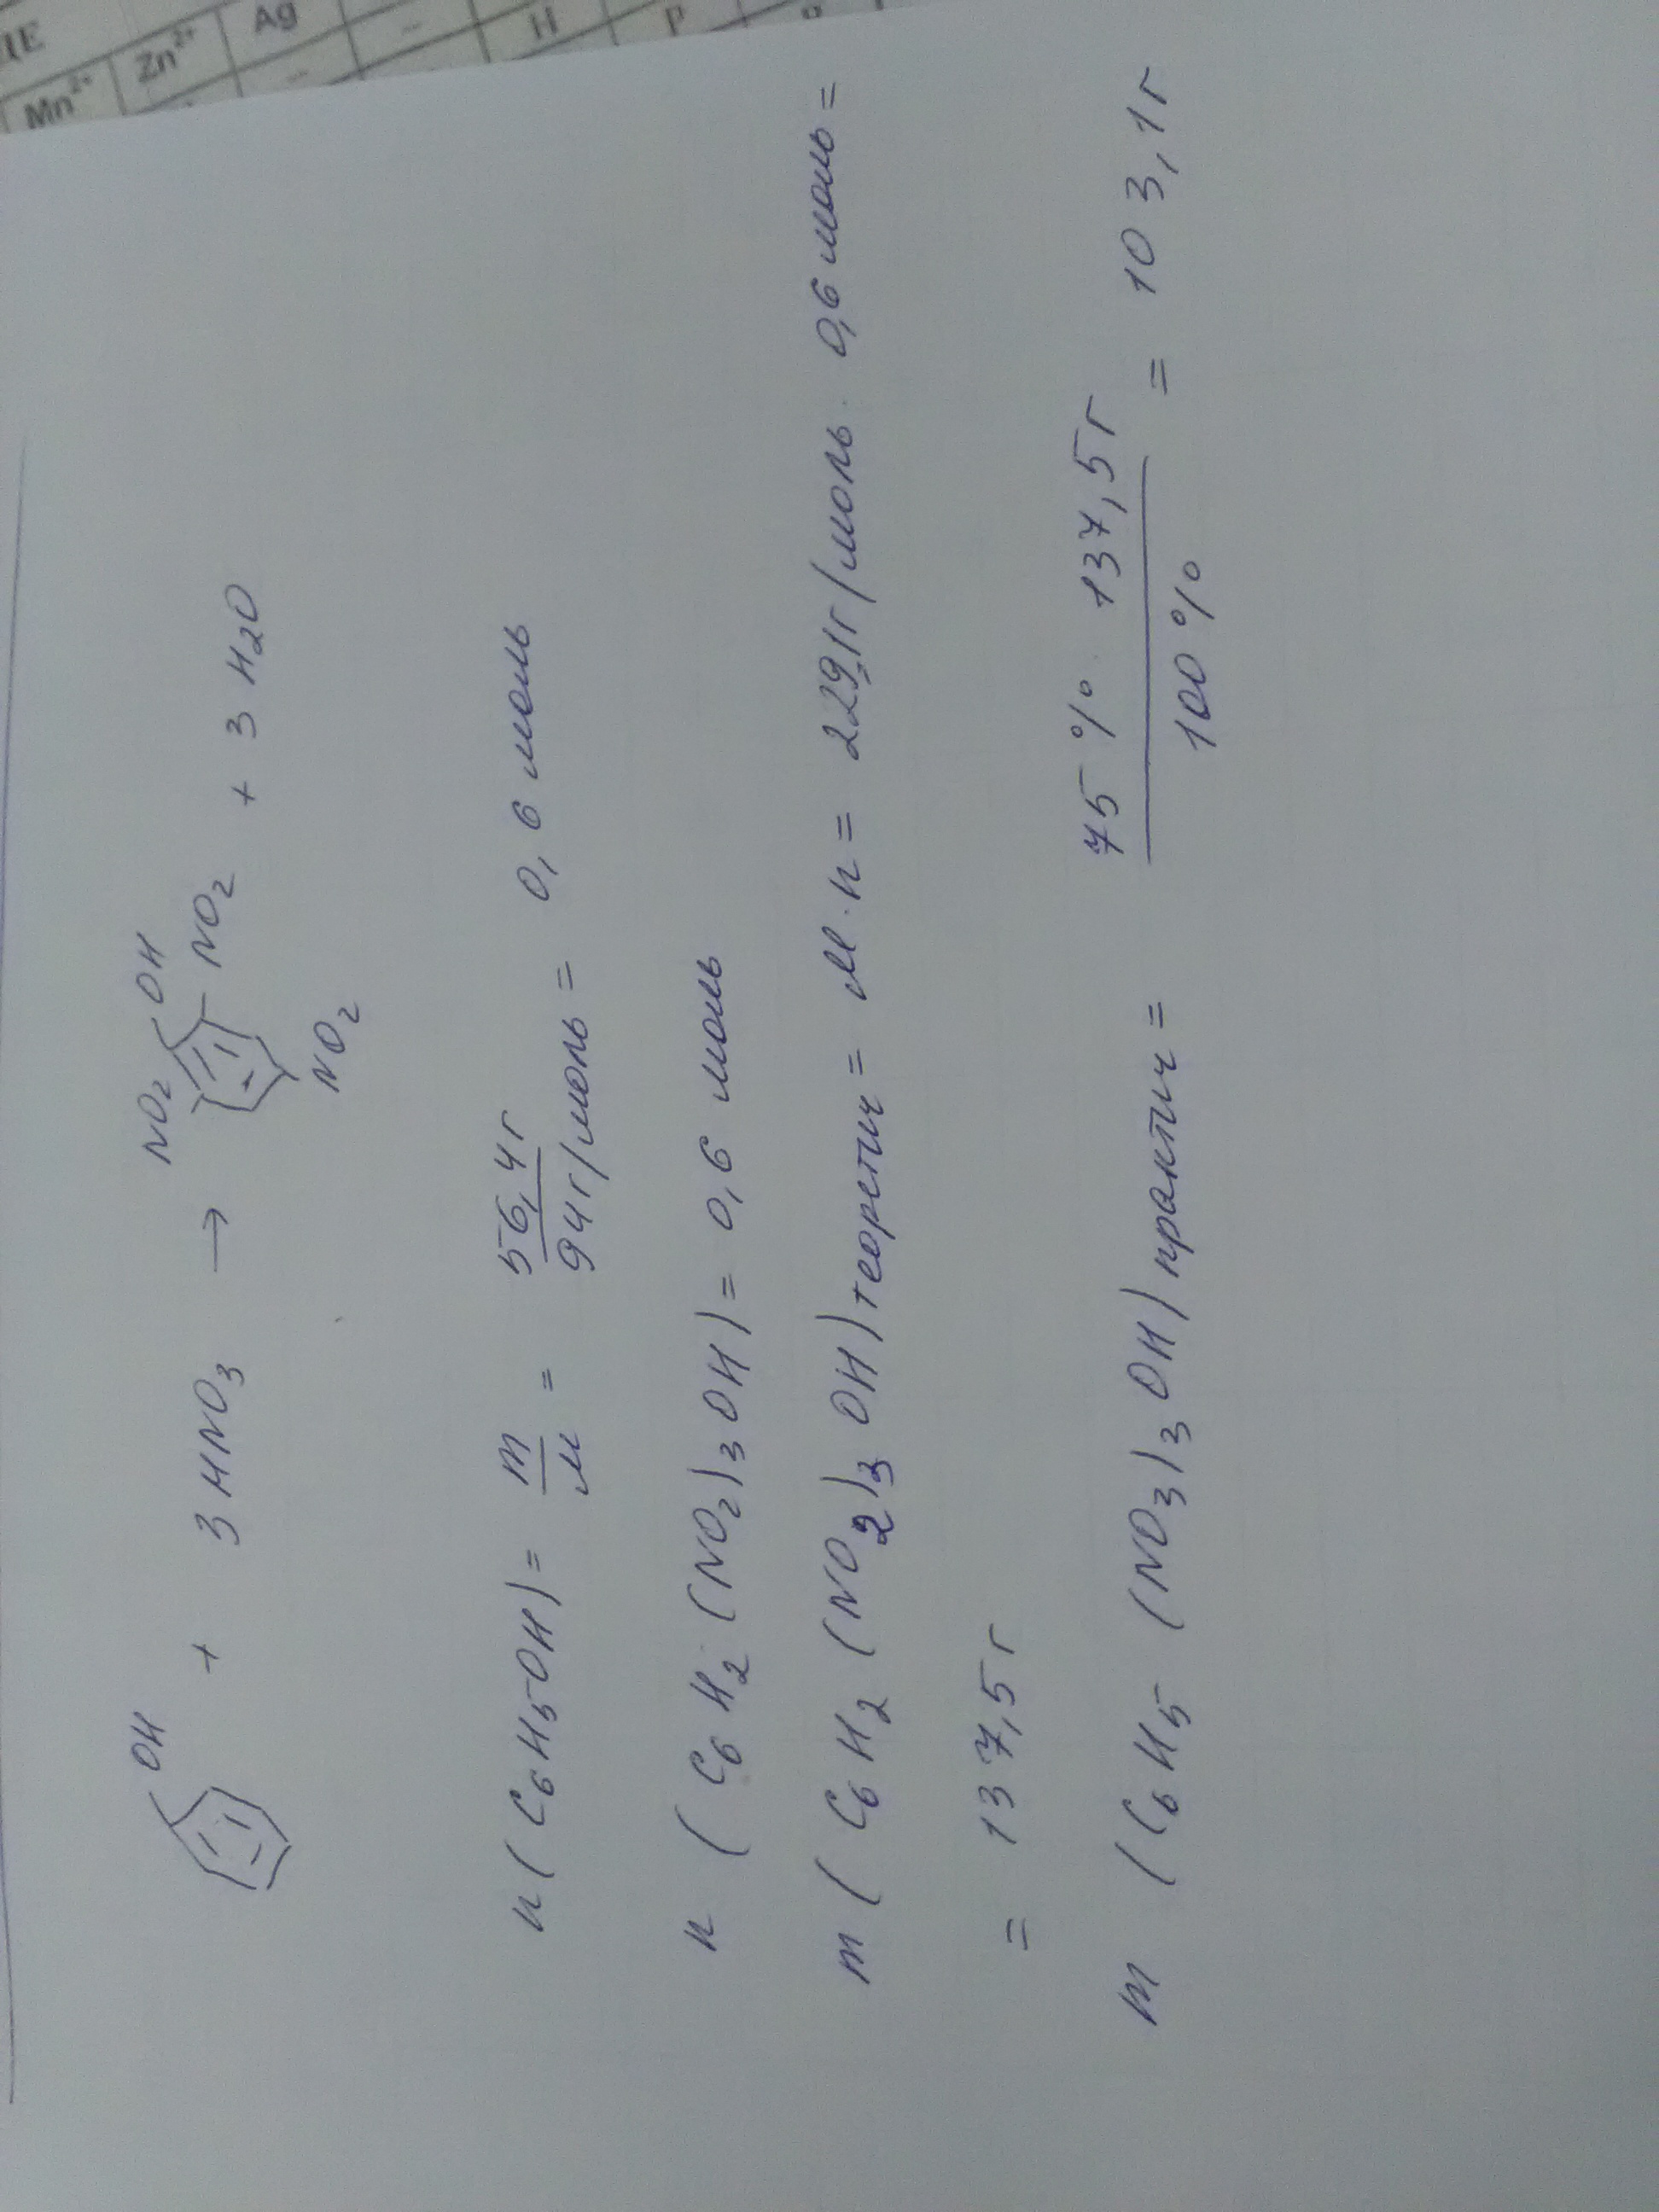 ІЕ
Mn²⁺ Zn²⁺ Ag – H P
OH NO₂ OH
+ 3 HNO₃ → NO₂ + 3 H₂O
NO₂
n (C₆H₅OH) = m/M = 56,4г/94г/моль = 0,6 моль
n (C₆H₂(NO₂)₃OH) = 0,6 моль
m (C₆H₂(NO₂)₃OH) теоретич = M·n = 229,1г/моль · 0,6 моль =
= 137,5г
m (C₆H₅(NO₃)₃OH) практич = 75% · 137,5г/100% = 103,1г